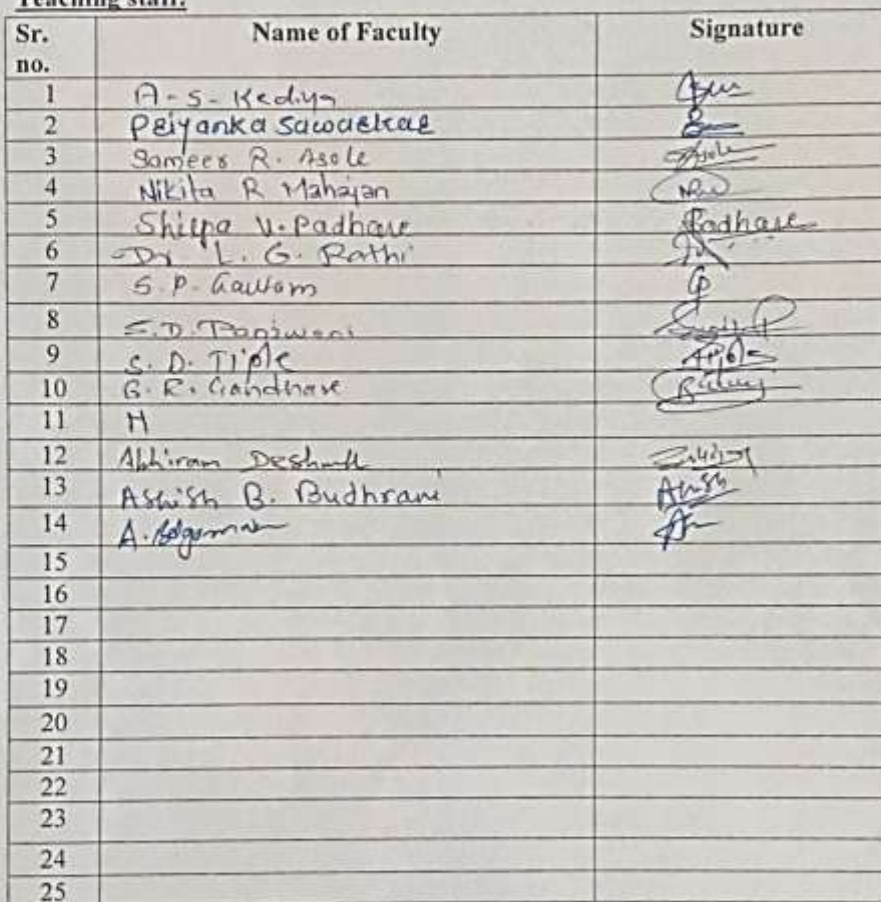 Teaching staff:
Sr. no. Name of Faculty Signature
1 A-S-Kediya
2 Priyanka Sawaekar
3 Sameer R. Asole Asole
4 Nikita R Mahajan
5 Shilpa V. Padhare Padhare
6 Dr. L. G. Rathi
7 S.P. Gautam
8 S.D. Panjwani
9 S. D. Tiple
10 G. R. Gandhare
11 H
12 Abhiram Deshmukh
13 Ashish B. Budhrani Ashish
14 A.
15
16
17
18
19
20
21
22
23
24
25